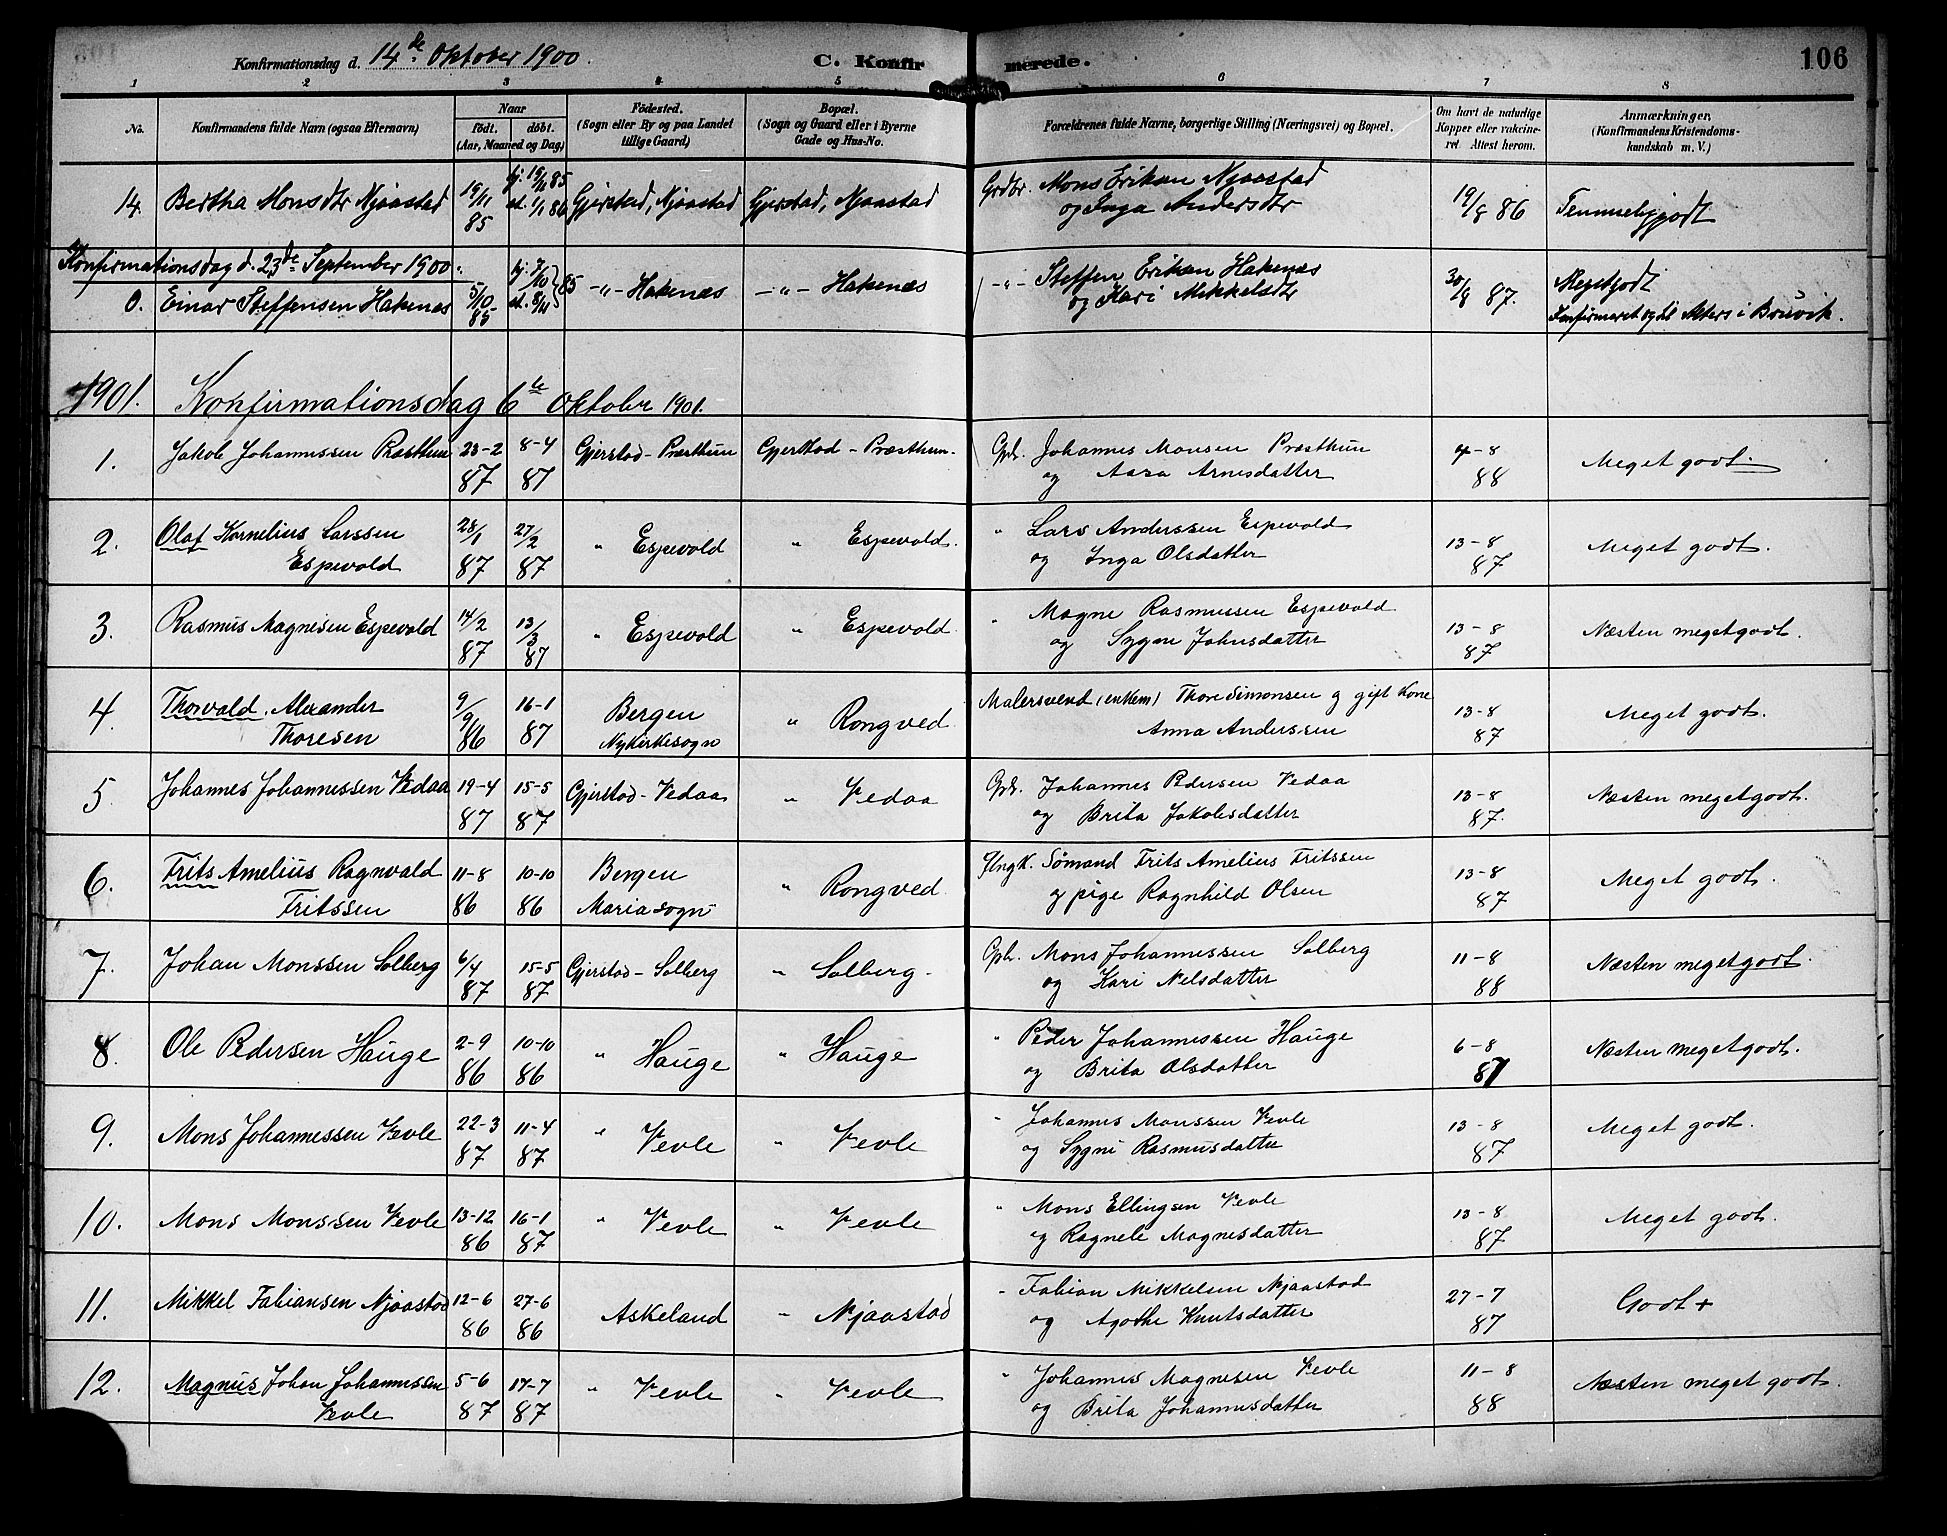 Konfirmationsdag d. 14de Oktober 1900.
C. Konfirmerede.
106
1 2 3 4 5 6 7 8
No.
Konfirmandens fulde Navn (ogsaa Efternavn)
Naar
født. døbt.
(Aar, Maaned og Dag)
Födested.
(Sogn eller By og paa Landet
tillige Gaard)
Bopæl.
(Sogn og Gaard eller i Byerne
Gade og Hus-No.
Forældrenes fulde Navne, borgerlige Stilling (Næringsvei) og Bopæl.
Om havt de naturlige
Kopper eller vakcine-
ret Attest herom.
Anmærkninger.
(Konfirmandens Kristendoms-
kundskab m. V.)
14. Bertha Monsdtr Njaastad 19/11 85 hj. 19/11 85 st. 1/1 86 Gjerstad, Njaastad Gjerstad, Njaastad Grdbr. Mons Eriksen Njaastad
og Inga Andersdtr 19/8 86 Temmeliggodt
Konfirmationsdag d. 23de September 1900.
0. Einar Steffensen Hakenæs 5/10 85 hj. 7/10 st. 8/11 85 -"- Hakenæs -"- Hakenæs -"- Steffen Eriksen Hakenæs
og Kari Mikkelsdtr 30/8 87. Megetgodt
Konfirmeret og til Alters i Bruvik.
1901. Konfirmationsdag 6te Oktober 1901.
1. Jakob Johannessen Præsthun 23-2 87 8-4 87 Gjerstad - Præsthun Gjerstad - Præsthun. Gbr. Johannes Monsen Præsthun
og Aasa Arnesdatter 4-8 88 Meget godt.
2. Olaf Kornelius Larssen
Espevold 28/1 87 27/2 87 " Espevold " Espevold. " Lars Anderssen Espevold
og Inga Olsdatter 13-8 87 Meget godt.
3. Rasmus Magnesen Espevold 14/2 87 13/3 87 " Espevold " Espevold. " Magne Rasmussen Espevold
og Sygne Johnsdatter 13-8 87 Næsten megetgodt.
4. Thorvald Alexander
Thoresen 9/9 86 16-1 87 Bergen
Nykirkesogn " Rongved. Malersvend (enkem) Thore Simonsen g gift Kone
Anna Anderssen 13-8 87 Meget godt.
5. Johannes Johannessen Vedaa 19-4 87 15-5 87 Gjerstad - Vedaa " Vedaa Gbr. Johannes Pedersen Vedaa
og Brita Jakobsdatter 13-8 87. Næsten megetgodt.
6. Frits Amelius Ragnvald
Fritssen 11-8 86 10-10 86 Bergen
Mariasogn " Rongved. Ungk. Sømand Frits Amelius Fritssen
g pige Ragnhild Olsen 13-8 87 Meget godt.
7. Johan Monssen Solberg 6/4 87 15-5 87 Gjerstad - Solberg " Solberg. Gbr. Mons Johannessen Solberg
og Kari Nelsdatter 11-8 88 Næsten megetgodt.
8. Ole Pedersen Hauge 2-9 86 10-10 86 " Hauge " Hauge " Peder Johannessen Hauge
og Brita Olsdatter 6-8 87 Næsten megetgodt.
9. Mons Johannessen Vevle 22-3 87 11-4 87 " Vevle " Vevle " Johannes Monssen Vevle
og Sygni Rasmusdatter 13-8 87 Meget godt.
10. Mons Monssen Vevle 13-12 86 16-1 87 " Vevle " Vevle " Mons Ellingsen Vevle
g Ragnele Magnesdatter 13-8 87 Meget godt.
11. Mikkel Fabiansen Njaastad 12-6 86 27-6 86 Askeland " Njaastad " Fabian Mikkelsen Njaastad
og Agothe Knutsdatter 27-7 87 Godt +
12. Magnus Johan Johannessen
Vevle 5-6 87 17-7 87 " Vevle " Vevle " Johannes Magnesen Vevle
og Brita Johannesdatter 11-8 88 Næsten meget godt.